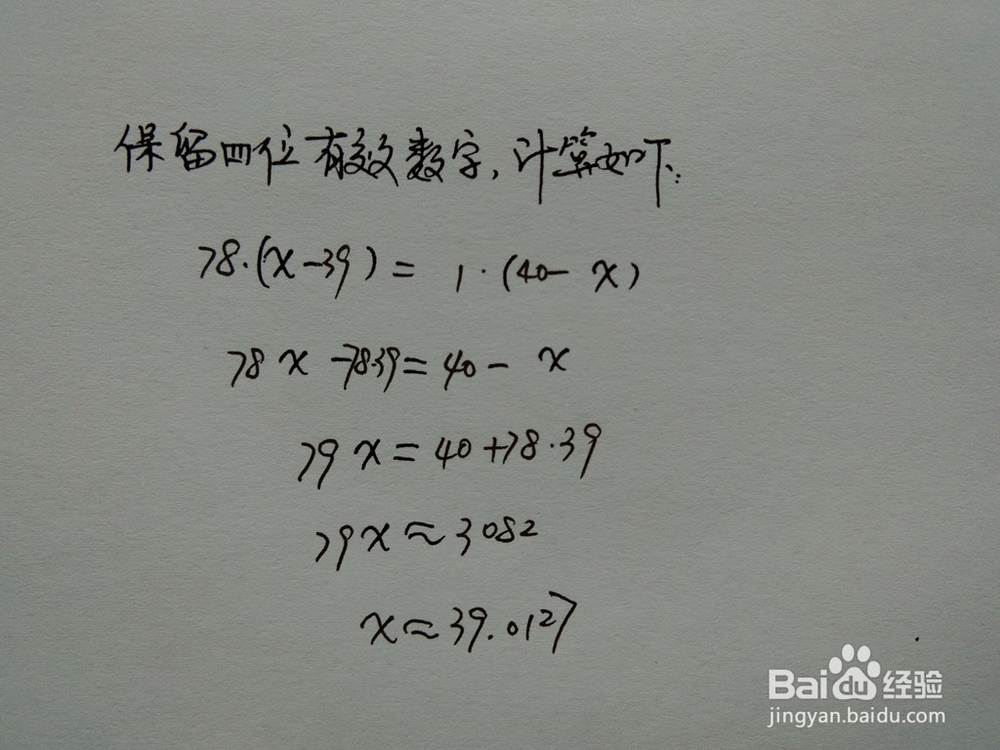 保留四位有效数字,计算如下:
78·(x-39)= 1·(40-x)
78x-78·39=40-x
79x=40+78·39
79x≈3082
x≈39.0127
Baidu经验
jingyan.baidu.com